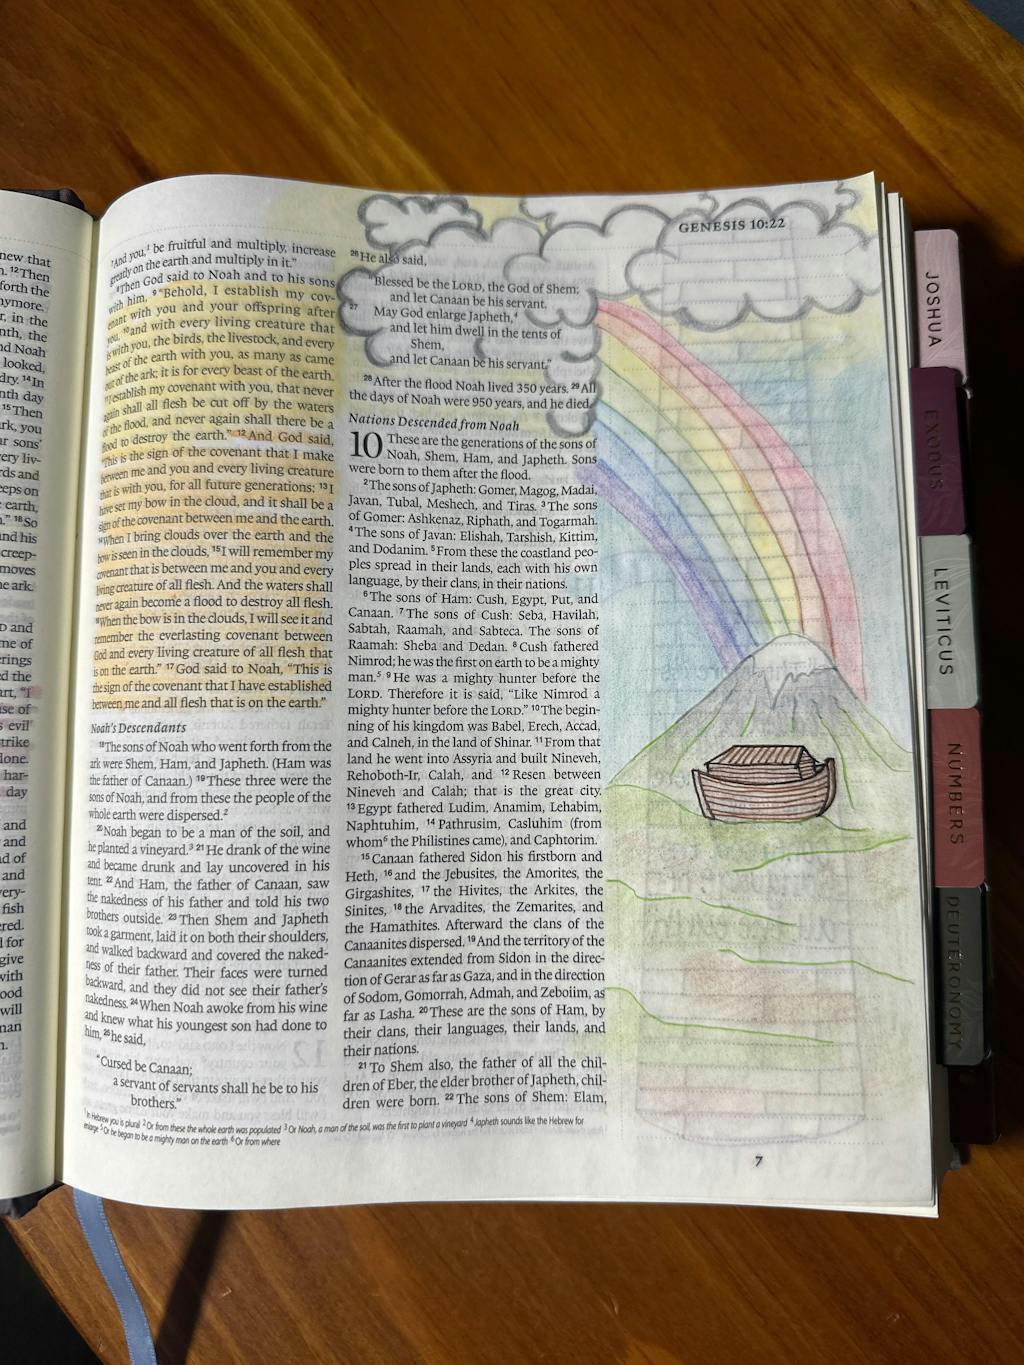 new that
12Then
forth the
nymore.
r, in the
nth, the
nd Noah
looked,
dry. 14In
nth day
15Then
rk, you
ur sons'
very liv-
rds and
eeps on
earth,
.” 18So
nd his
creep-
moves
he ark.
D and
me of
erings
ed the
art, “I
use of
s evil
strike
done.
har-
day
and
and
d of
and
very-
fish
ered.
l for
give
with
ood
will
man
n.
GENESIS 10:22
7And you,1 be fruitful and multiply, increase
greatly on the earth and multiply in it.”
8Then God said to Noah and to his sons
with him, 9“Behold, I establish my cov-
enant with you and your offspring after
you, 10and with every living creature that
is with you, the birds, the livestock, and every
beast of the earth with you, as many as came
out of the ark; it is for every beast of the earth.
11I establish my covenant with you, that never
again shall all flesh be cut off by the waters
of the flood, and never again shall there be a
flood to destroy the earth.” 12And God said,
“This is the sign of the covenant that I make
between me and you and every living creature
that is with you, for all future generations: 13I
have set my bow in the cloud, and it shall be a
sign of the covenant between me and the earth.
14When I bring clouds over the earth and the
bow is seen in the clouds, 15I will remember my
covenant that is between me and you and every
living creature of all flesh. And the waters shall
never again become a flood to destroy all flesh.
16When the bow is in the clouds, I will see it and
remember the everlasting covenant between
God and every living creature of all flesh that
is on the earth.” 17God said to Noah, “This is
the sign of the covenant that I have established
between me and all flesh that is on the earth.”
Noah's Descendants
18The sons of Noah who went forth from the
ark were Shem, Ham, and Japheth. (Ham was
the father of Canaan.) 19These three were the
sons of Noah, and from these the people of the
whole earth were dispersed.2
20Noah began to be a man of the soil, and
he planted a vineyard.3 21He drank of the wine
and became drunk and lay uncovered in his
tent. 22And Ham, the father of Canaan, saw
the nakedness of his father and told his two
brothers outside. 23Then Shem and Japheth
took a garment, laid it on both their shoulders,
and walked backward and covered the naked-
ness of their father. Their faces were turned
backward, and they did not see their father's
nakedness. 24When Noah awoke from his wine
and knew what his youngest son had done to
him, 25he said,
“Cursed be Canaan;
a servant of servants shall he be to his
brothers.”
26He also said,
“Blessed be the LORD, the God of Shem;
and let Canaan be his servant.
27 May God enlarge Japheth,4
and let him dwell in the tents of
Shem,
and let Canaan be his servant.”
28After the flood Noah lived 350 years. 29All
the days of Noah were 950 years, and he died.
Nations Descended from Noah
10 These are the generations of the sons of
Noah, Shem, Ham, and Japheth. Sons
were born to them after the flood.
2The sons of Japheth: Gomer, Magog, Madai,
Javan, Tubal, Meshech, and Tiras. 3The sons
of Gomer: Ashkenaz, Riphath, and Togarmah.
4The sons of Javan: Elishah, Tarshish, Kittim,
and Dodanim. 5From these the coastland peo-
ples spread in their lands, each with his own
language, by their clans, in their nations.
6The sons of Ham: Cush, Egypt, Put, and
Canaan. 7The sons of Cush: Seba, Havilah,
Sabtah, Raamah, and Sabteca. The sons of
Raamah: Sheba and Dedan. 8Cush fathered
Nimrod; he was the first on earth to be a mighty
man.5 9He was a mighty hunter before the
LORD. Therefore it is said, “Like Nimrod a
mighty hunter before the LORD.” 10The begin-
ning of his kingdom was Babel, Erech, Accad,
and Calneh, in the land of Shinar. 11From that
land he went into Assyria and built Nineveh,
Rehoboth-Ir, Calah, and 12Resen between
Nineveh and Calah; that is the great city.
13Egypt fathered Ludim, Anamim, Lehabim,
Naphtuhim, 14Pathrusim, Casluhim (from
whom6 the Philistines came), and Caphtorim.
15Canaan fathered Sidon his firstborn and
Heth, 16and the Jebusites, the Amorites, the
Girgashites, 17the Hivites, the Arkites, the
Sinites, 18the Arvadites, the Zemarites, and
the Hamathites. Afterward the clans of the
Canaanites dispersed. 19And the territory of the
Canaanites extended from Sidon in the direc-
tion of Gerar as far as Gaza, and in the direction
of Sodom, Gomorrah, Admah, and Zeboiim, as
far as Lasha. 20These are the sons of Ham, by
their clans, their languages, their lands, and
their nations.
21To Shem also, the father of all the chil-
dren of Eber, the elder brother of Japheth, chil-
dren were born. 22The sons of Shem: Elam,
1In Hebrew you is plural 2Or from these the whole earth was populated 3Or Noah, a man of the soil, was the first to plant a vineyard 4Japheth sounds like the Hebrew for
enlarge 5Or he began to be a mighty man on the earth 6Or from where
7
JOSHUA
EXODUS
LEVITICUS
NUMBERS
DEUTERONOMY